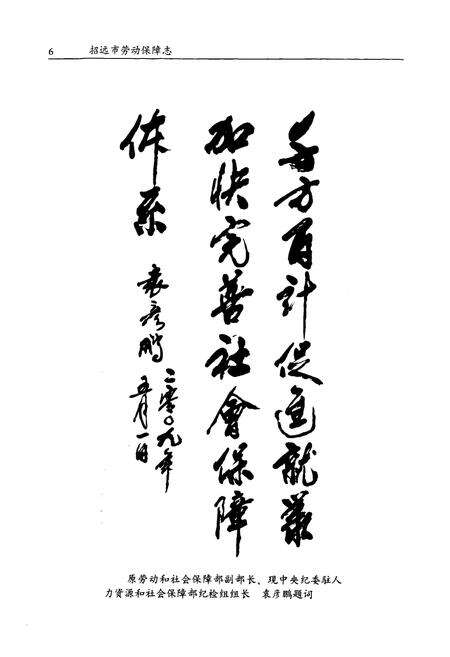 6 招远市劳动保障志
千方百计促進就業
加快完善社會保障
体系
袁彦鹏
二零〇九年
五月一日
原劳动和社会保障部副部长、现中央纪委驻人
力资源和社会保障部纪检组组长 袁彦鹏题词